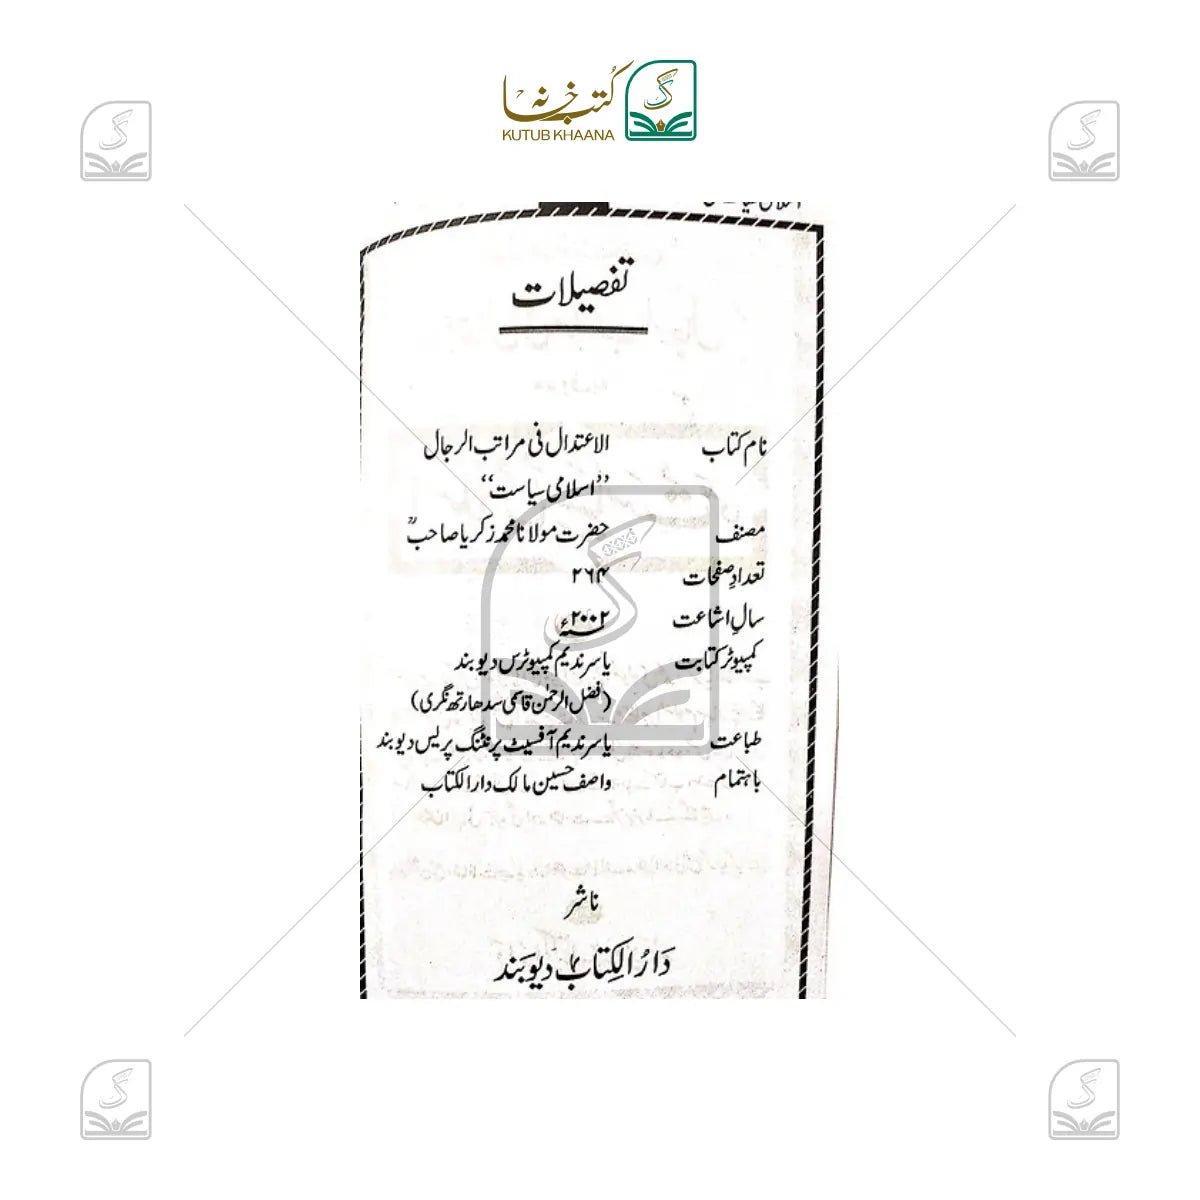 کتب خانہ
KUTUB KHAANA
تفصیلات
نام کتاب الاعتدال فی مراتب الرجال
”اسلامی سیاست“
مصنف حضرت مولانا محمد زکریا صاحبؒ
تعدادِ صفحات ۲۶۴
سالِ اشاعت ۲۰۰۲ء
کمپیوٹر کتابت یاسر ندیم کمپیوٹرس دیوبند
(فضل الرحمٰن قاسمی سدھارتھ نگری)
طباعت یاسر ندیم آفسیٹ پرنٹنگ پریس دیوبند
باہتمام واصف حسین مالک دارالکتاب
ناشر
دَارُ الکِتاب دیوبَند